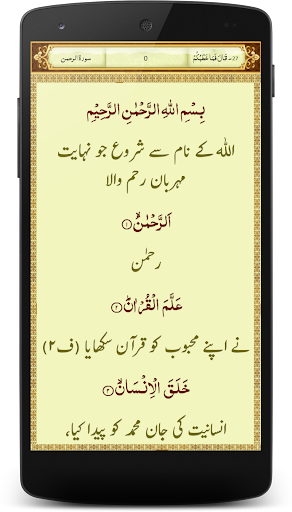 سورة الرحمن 0 27- قَالَ فَمَا خَطْبُكُمْ
بِسْمِ اللهِ الرَّحْمٰنِ الرَّحِيْمِ
اللہ کے نام سے شروع جو نہایت
مہربان رحم والا
اَلرَّحْمٰنُۙ﴿۱﴾
رحمٰن
عَلَّمَ الْقُرْاٰنَؕ﴿۲﴾
نے اپنے محبوب کو قرآن سکھایا (ف۲)
خَلَقَ الْاِنْسَانَۙ﴿۳﴾
انسانیت کی جان محمد کو پیدا کیا،